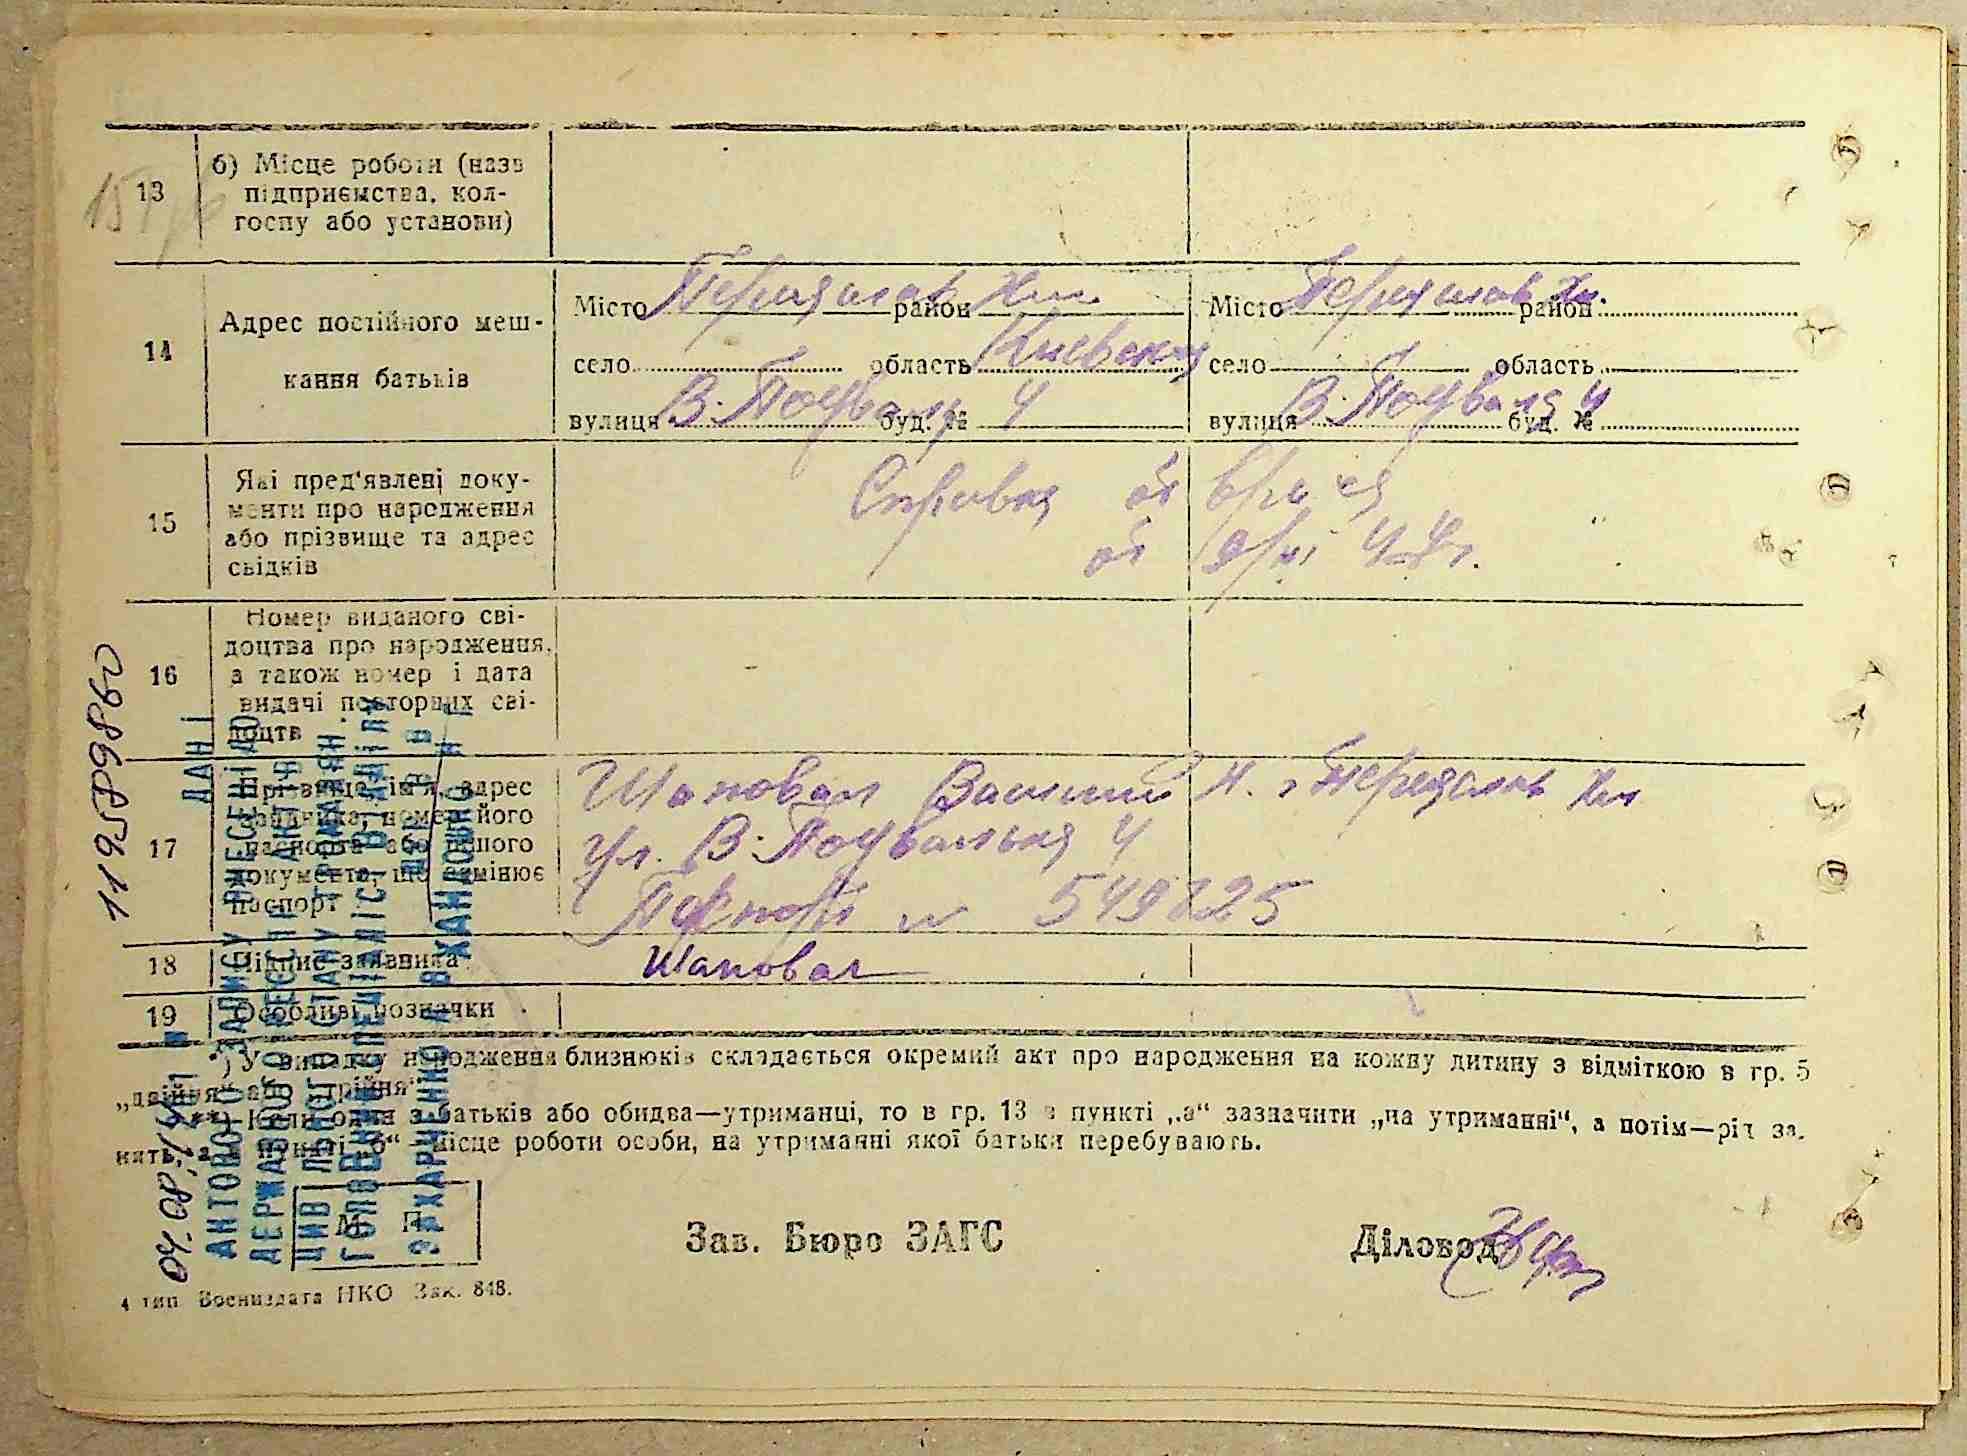 13
б) Місце роботи (назв
підприємства, кол-
госпу або установи)
14
Адрес постійного меш-
кання батьків
Місто Переяслав район Хм.
село область Киевская
вулиця В. Подвальн буд. № 4
Місто Переяслав район Хм.
село область
вулиця В. Подвальн буд. № 4
15
Які пред'явлені доку-
менти про народження
або прізвище та адрес
свідків
Справка от врача
от
16
Номер виданого сві-
доцтва про народження,
а також номер і дата
видачі повторних сві-
доцтв
17
Прізвище, ім'я, адрес
заявника, номер його
паспорта або іншого
документа, що замінює
паспорт
Шаповал Василий И. г Переяслов Хм
Ул. В. Подвальная 4
Паспорт № 549825
18
Підпис заявника
Шаповал
19
Особливі позначки
*) У випадку народження близнюків складається окремий акт про народження на кожну дитину з відміткою в гр. 5
„двійня“ або „трійня“
**) Коли один з батьків або обидва—утриманці, то в гр. 13 в пункті „а“ зазначити „на утриманні“, а потім—рід за-
нять, а в пункті „б“ місце роботи особи, на утриманні якої батьки перебувають.
М П
Зав. Бюро ЗАГС
Діловод
4 тип Воениздата НКО Зак. 848.
ДАНІ
АКТОВОГО ЗАПИСУ ВНЕСЕНІ ДО
ДЕРЖАВНОГО РЕЄСТРУ АКТІВ
ЦИВІЛЬНОГО СТАНУ ГРОМАДЯН
ГОЛОВНИЙ СПЕЦІАЛІСТ ВІДДІЛУ